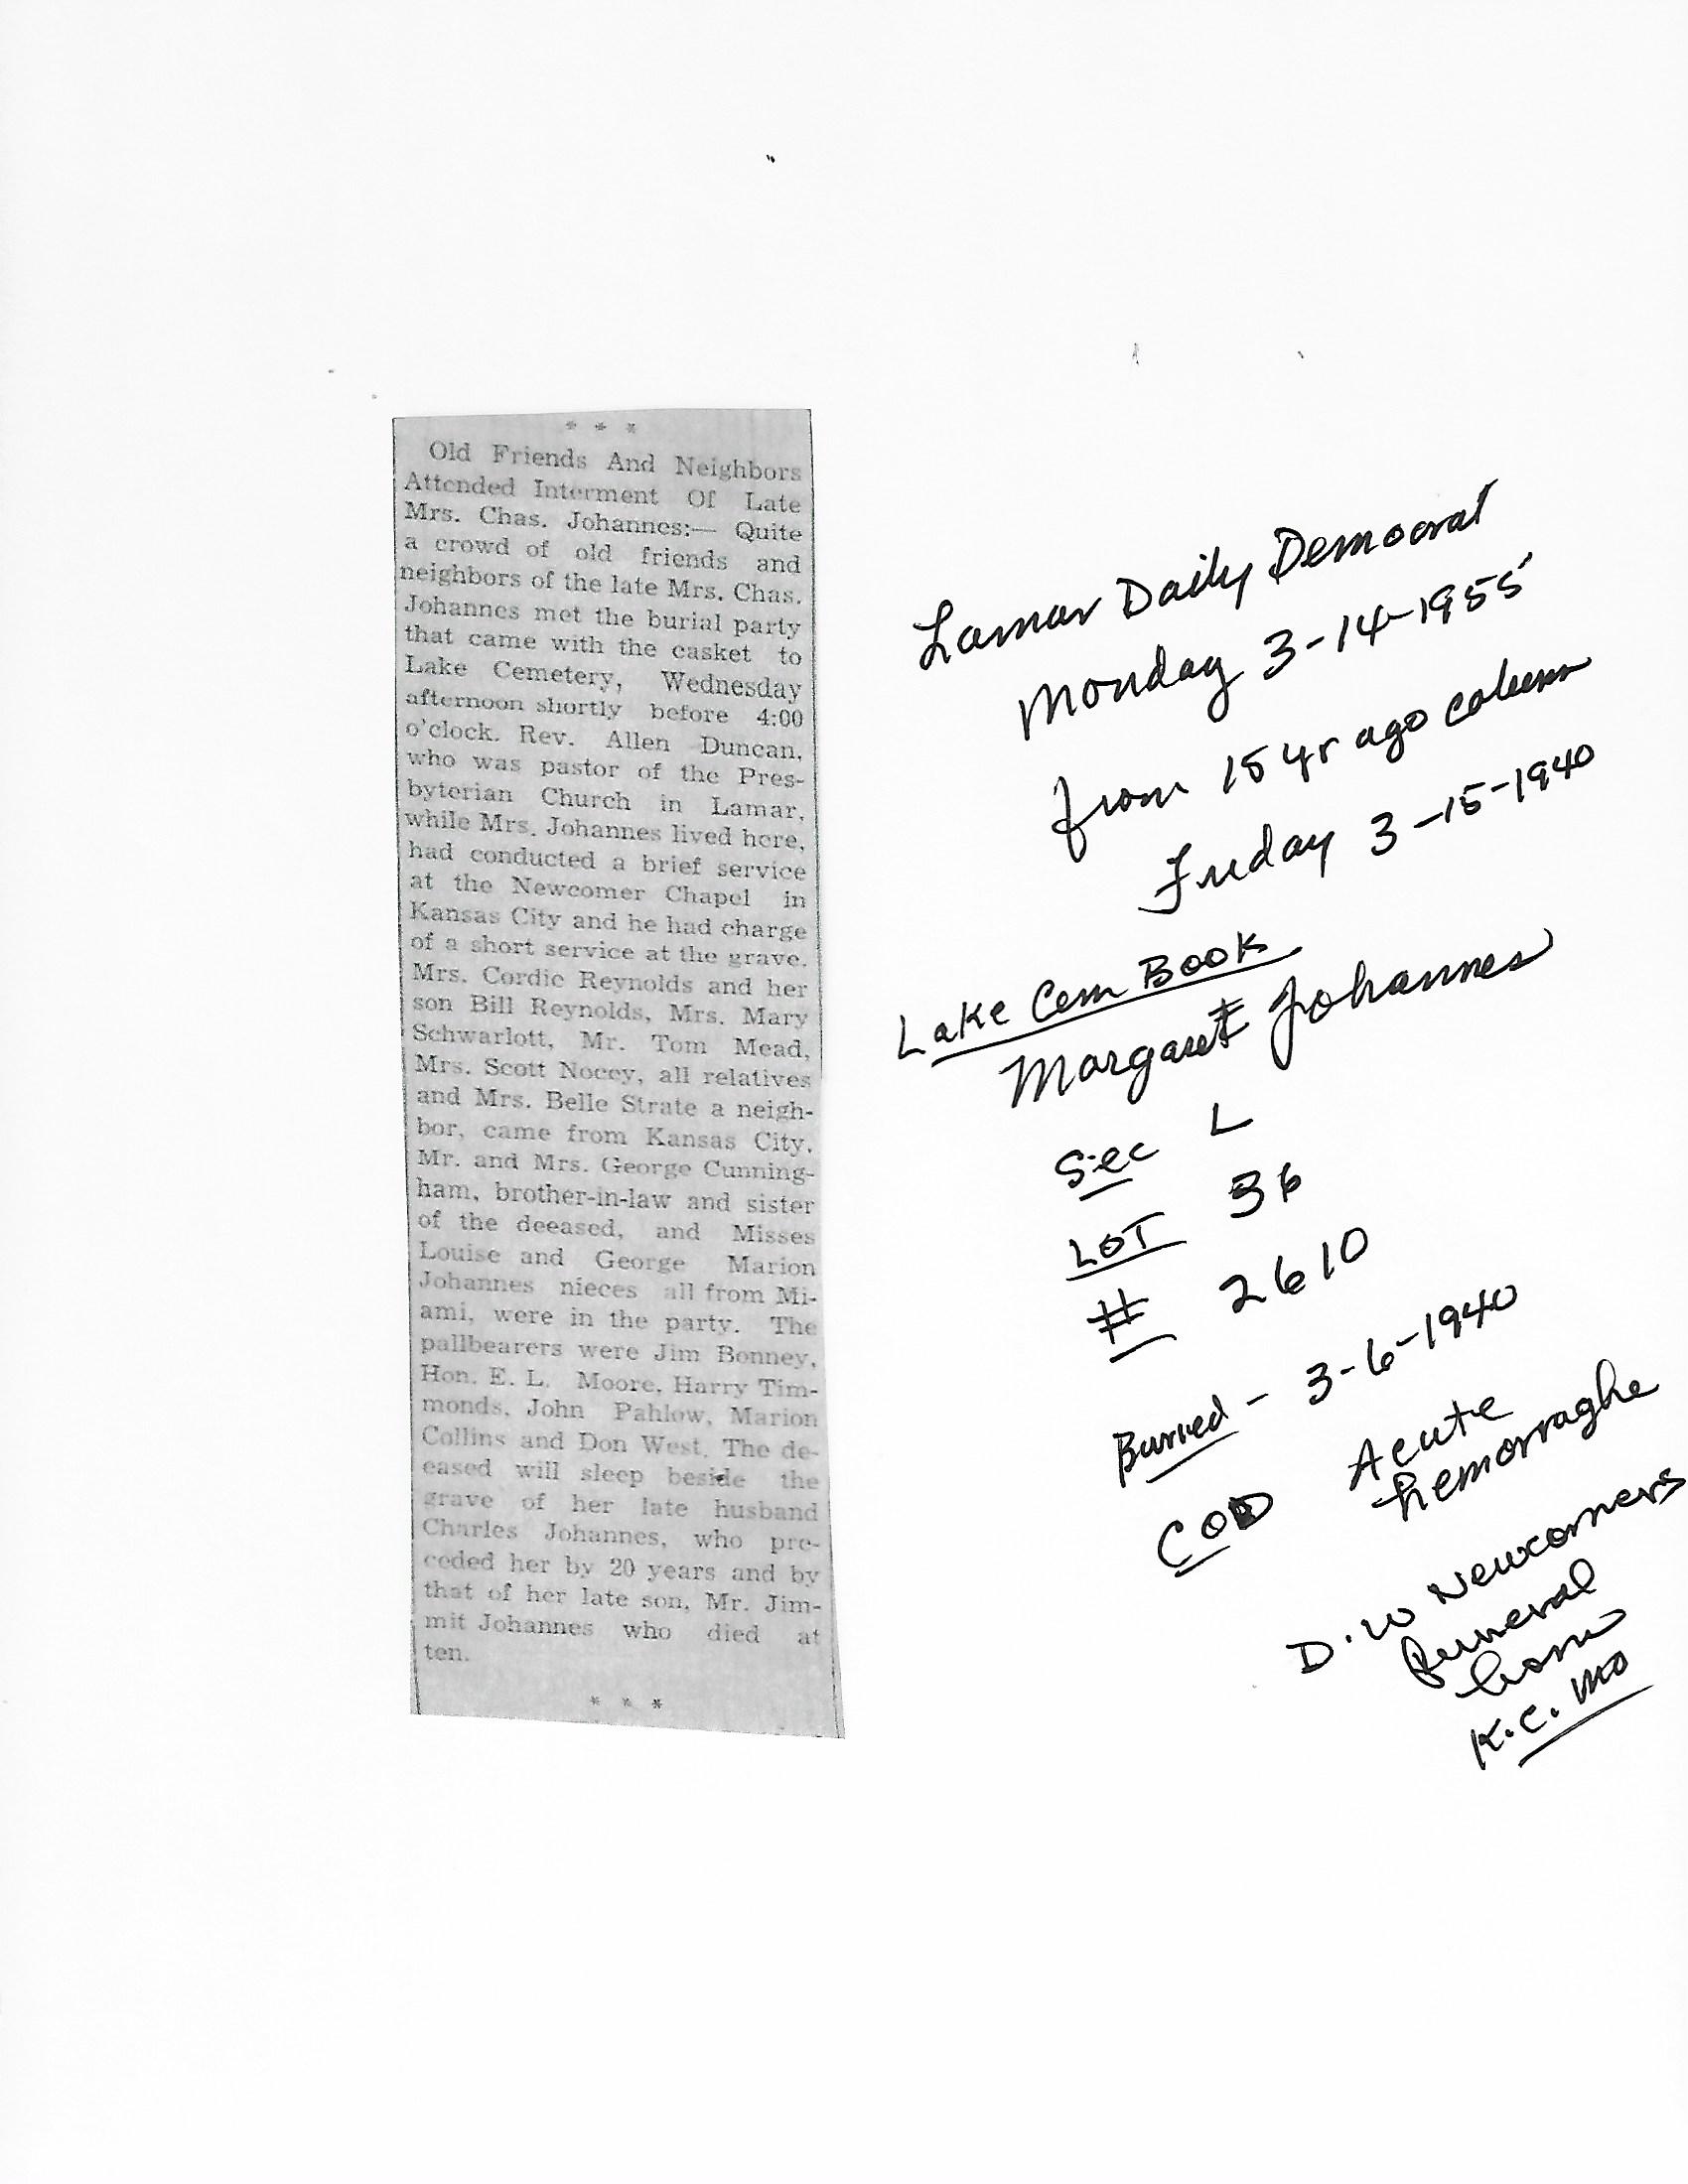 * * *
Old Friends And Neighbors
Attended Interment Of Late
Mrs. Chas. Johannes:— Quite
a crowd of old friends and
neighbors of the late Mrs. Chas.
Johannes met the burial party
that came with the casket to
Lake Cemetery, Wednesday
afternoon shortly before 4:00
o'clock. Rev. Allen Duncan,
who was pastor of the Pres-
byterian Church in Lamar,
while Mrs. Johannes lived here,
had conducted a brief service
at the Newcomer Chapel in
Kansas City and he had charge
of a short service at the grave.
Mrs. Cordie Reynolds and her
son Bill Reynolds, Mrs. Mary
Schwarlott, Mr. Tom Mead,
Mrs. Scott Nocey, all relatives
and Mrs. Belle Strate a neigh-
bor, came from Kansas City.
Mr. and Mrs. George Cunning-
ham, brother-in-law and sister
of the deeased, and Misses
Louise and George Marion
Johannes nieces all from Mi-
ami, were in the party. The
pallbearers were Jim Bonney,
Hon. E. L. Moore, Harry Tim-
monds, John Pahlow, Marion
Collins and Don West. The de-
eased will sleep beside the
grave of her late husband
Charles Johannes, who pre-
ceded her by 20 years and by
that of her late son, Mr. Jim-
mit Johannes who died at
ten.
* * *
Lamar Daily Democrat
Monday 3-14-1955
from 15 yr ago column
Friday 3-15-1940
Lake Cem Book
Margaret Johannes
Sec L
LOT 36
# 2610
Burried - 3-6-1940
COD Acute
hemorraghe
D.W Newcomers
Funeral
home
K.C. MO